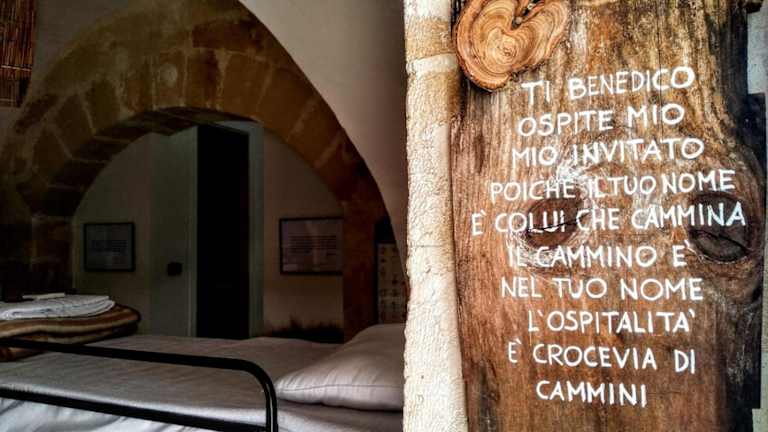 TI BENEDICO
OSPITE MIO
MIO INVITATO
POICHÈ IL TUO NOME
È COLUI CHE CAMMINA
IL CAMMINO È
NEL TUO NOME
L'OSPITALITA'
È CROCEVIA DI
CAMMINI